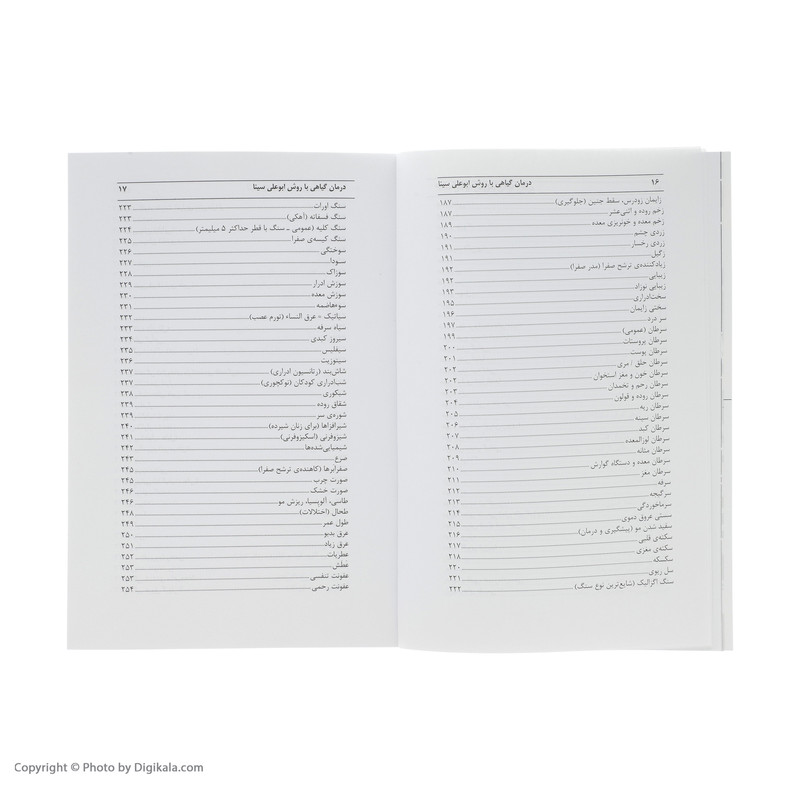 ۱۶ درمان گیاهی با روش ابوعلی سینا
زایمان زودرس، سقط جنین (جلوگیری) ۱۸۷
زخم روده و اثنی‌عشر ۱۸۷
زخم معده و خونریزی معده ۱۸۹
زردی چشم ۱۹۰
زردی رخسار ۱۹۱
زگیل ۱۹۱
زیادکننده‌ی ترشح صفرا (مدر صفرا) ۱۹۲
زیبایی ۱۹۲
زیبایی نوزاد ۱۹۳
سخت‌ادراری ۱۹۵
سختی زایمان ۱۹۶
سر درد ۱۹۷
سرطان (عمومی) ۱۹۹
سرطان پروستات ۲۰۰
سرطان پوست ۲۰۱
سرطان حلق / مری ۲۰۲
سرطان خون و مغز استخوان ۲۰۲
سرطان رحم و تخمدان ۲۰۳
سرطان روده و قولون ۲۰۴
سرطان ریه ۲۰۵
سرطان سینه ۲۰۶
سرطان کبد ۲۰۷
سرطان لوزالمعده ۲۰۸
سرطان مثانه ۲۰۹
سرطان معده و دستگاه گوارش ۲۱۰
سرطان مغز ۲۱۱
سرفه ۲۱۲
سرگیجه ۲۱۳
سرماخوردگی ۲۱۴
سستی عروق دموی ۲۱۵
سفید شدن مو (پیشگیری و درمان) ۲۱۶
سکته‌ی قلبی ۲۱۷
سکته‌ی مغزی ۲۱۸
سکسکه ۲۲۰
سل ریوی ۲۲۱
سنگ اگزالیک (شایع‌ترین نوع سنگ) ۲۲۲
درمان گیاهی با روش ابوعلی سینا ۱۷
سنگ اورات ۲۲۳
سنگ فسفاته (آهکی) ۲۲۳
سنگ کلیه (عمومی ـ سنگ با قطر حداکثر ۵ میلیمتر) ۲۲۴
سنگ کیسه‌ی صفرا ۲۲۵
سوختگی ۲۲۶
سودا ۲۲۷
سوزاک ۲۲۸
سوزش ادرار ۲۲۹
سوزش معده ۲۳۰
سوءهاضمه ۲۳۱
سیاتیک = عرق النساء (تورم عصب) ۲۳۲
سیاه سرفه ۲۳۳
سیروز کبدی ۲۳۴
سیفلیس ۲۳۵
سینوزیت ۲۳۶
شاش‌بند (رتانسیون ادراری) ۲۳۷
شب‌ادراری کودکان (نوکچوری) ۲۳۷
شبکوری ۲۳۸
شقاق روده ۲۳۹
شوره‌ی سر ۲۳۹
شیرافزاها (برای زنان شیرده) ۲۴۰
شیزوفرنی (اسکیزوفرنی) ۲۴۱
شیمیایی‌شده‌ها ۲۴۲
صرع ۲۴۳
صفرابرها (کاهنده‌ی ترشح صفرا) ۲۴۵
صورت چرب ۲۴۵
صورت خشک ۲۴۶
طاسی، آلوپسیا، ریزش مو ۲۴۶
طحال (اختلالات) ۲۴۸
طول عمر ۲۴۹
عرق بدبو ۲۵۰
عرق زیاد ۲۵۱
عطریات ۲۵۲
عطش ۲۵۳
عفونت تنفسی ۲۵۳
عفونت رحمی ۲۵۴
Copyright © Photo by Digikala.com